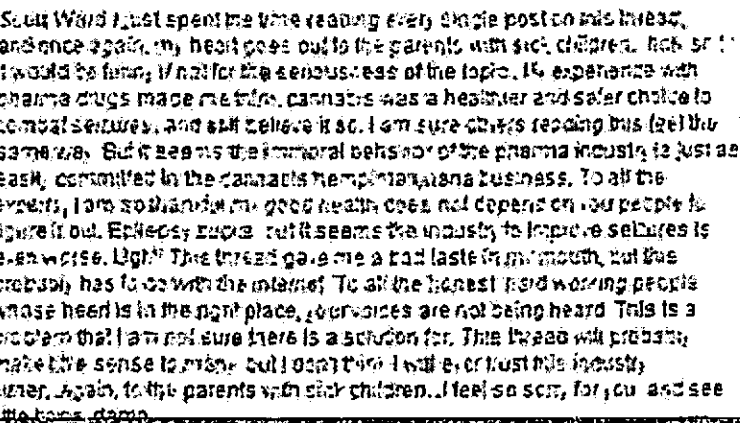 Scott Ward I just spent the time reading every single post on this thread,
and once again, my heart goes out to the parents with sick children.
It would be funny if not for the seriousness of the topic. My experience with
pharma drugs made me think, cannabis was a healthier and safer choice to
combat seizures, and still believe it so. I am sure others reading this feel the
same way. But it seems the immoral behavior of the pharma industry is just as
easily committed in the cannabis hemp/marijuana business. To all the
experts, I am so thankful my good health does not depend on you people to
figure it out. Epilepsy sucks but it seems the industry to improve seizures is
even worse. Ugh!! This thread gave me a bad taste in my mouth, but this
probably has to do with the internet. To all the honest hard working people
whose heart is in the right place, your voices are not being heard. This is a
problem that I am not sure there is a solution for. This thread will probably
make little sense to many but I don't think I will ever trust this industry
either. Again, to the parents with sick children..I feel so sorry for you and see